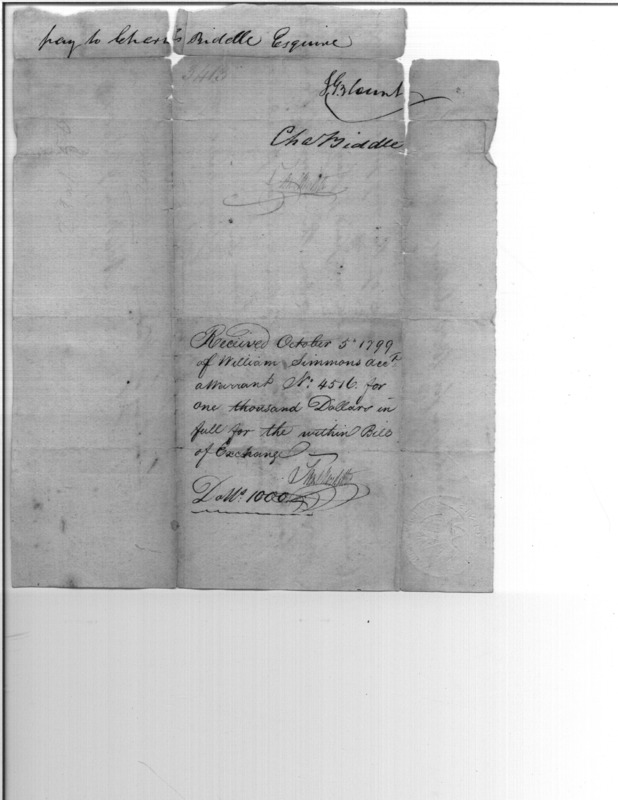 pay to Charles Biddle Esquire
J G Blount
Cha Biddle
Received October 5th 1799
of William Simmons acct
a Warrant No: 4516. for
one thousand Dollars in
full for the within Bill
of Exchange
Dolls 1000